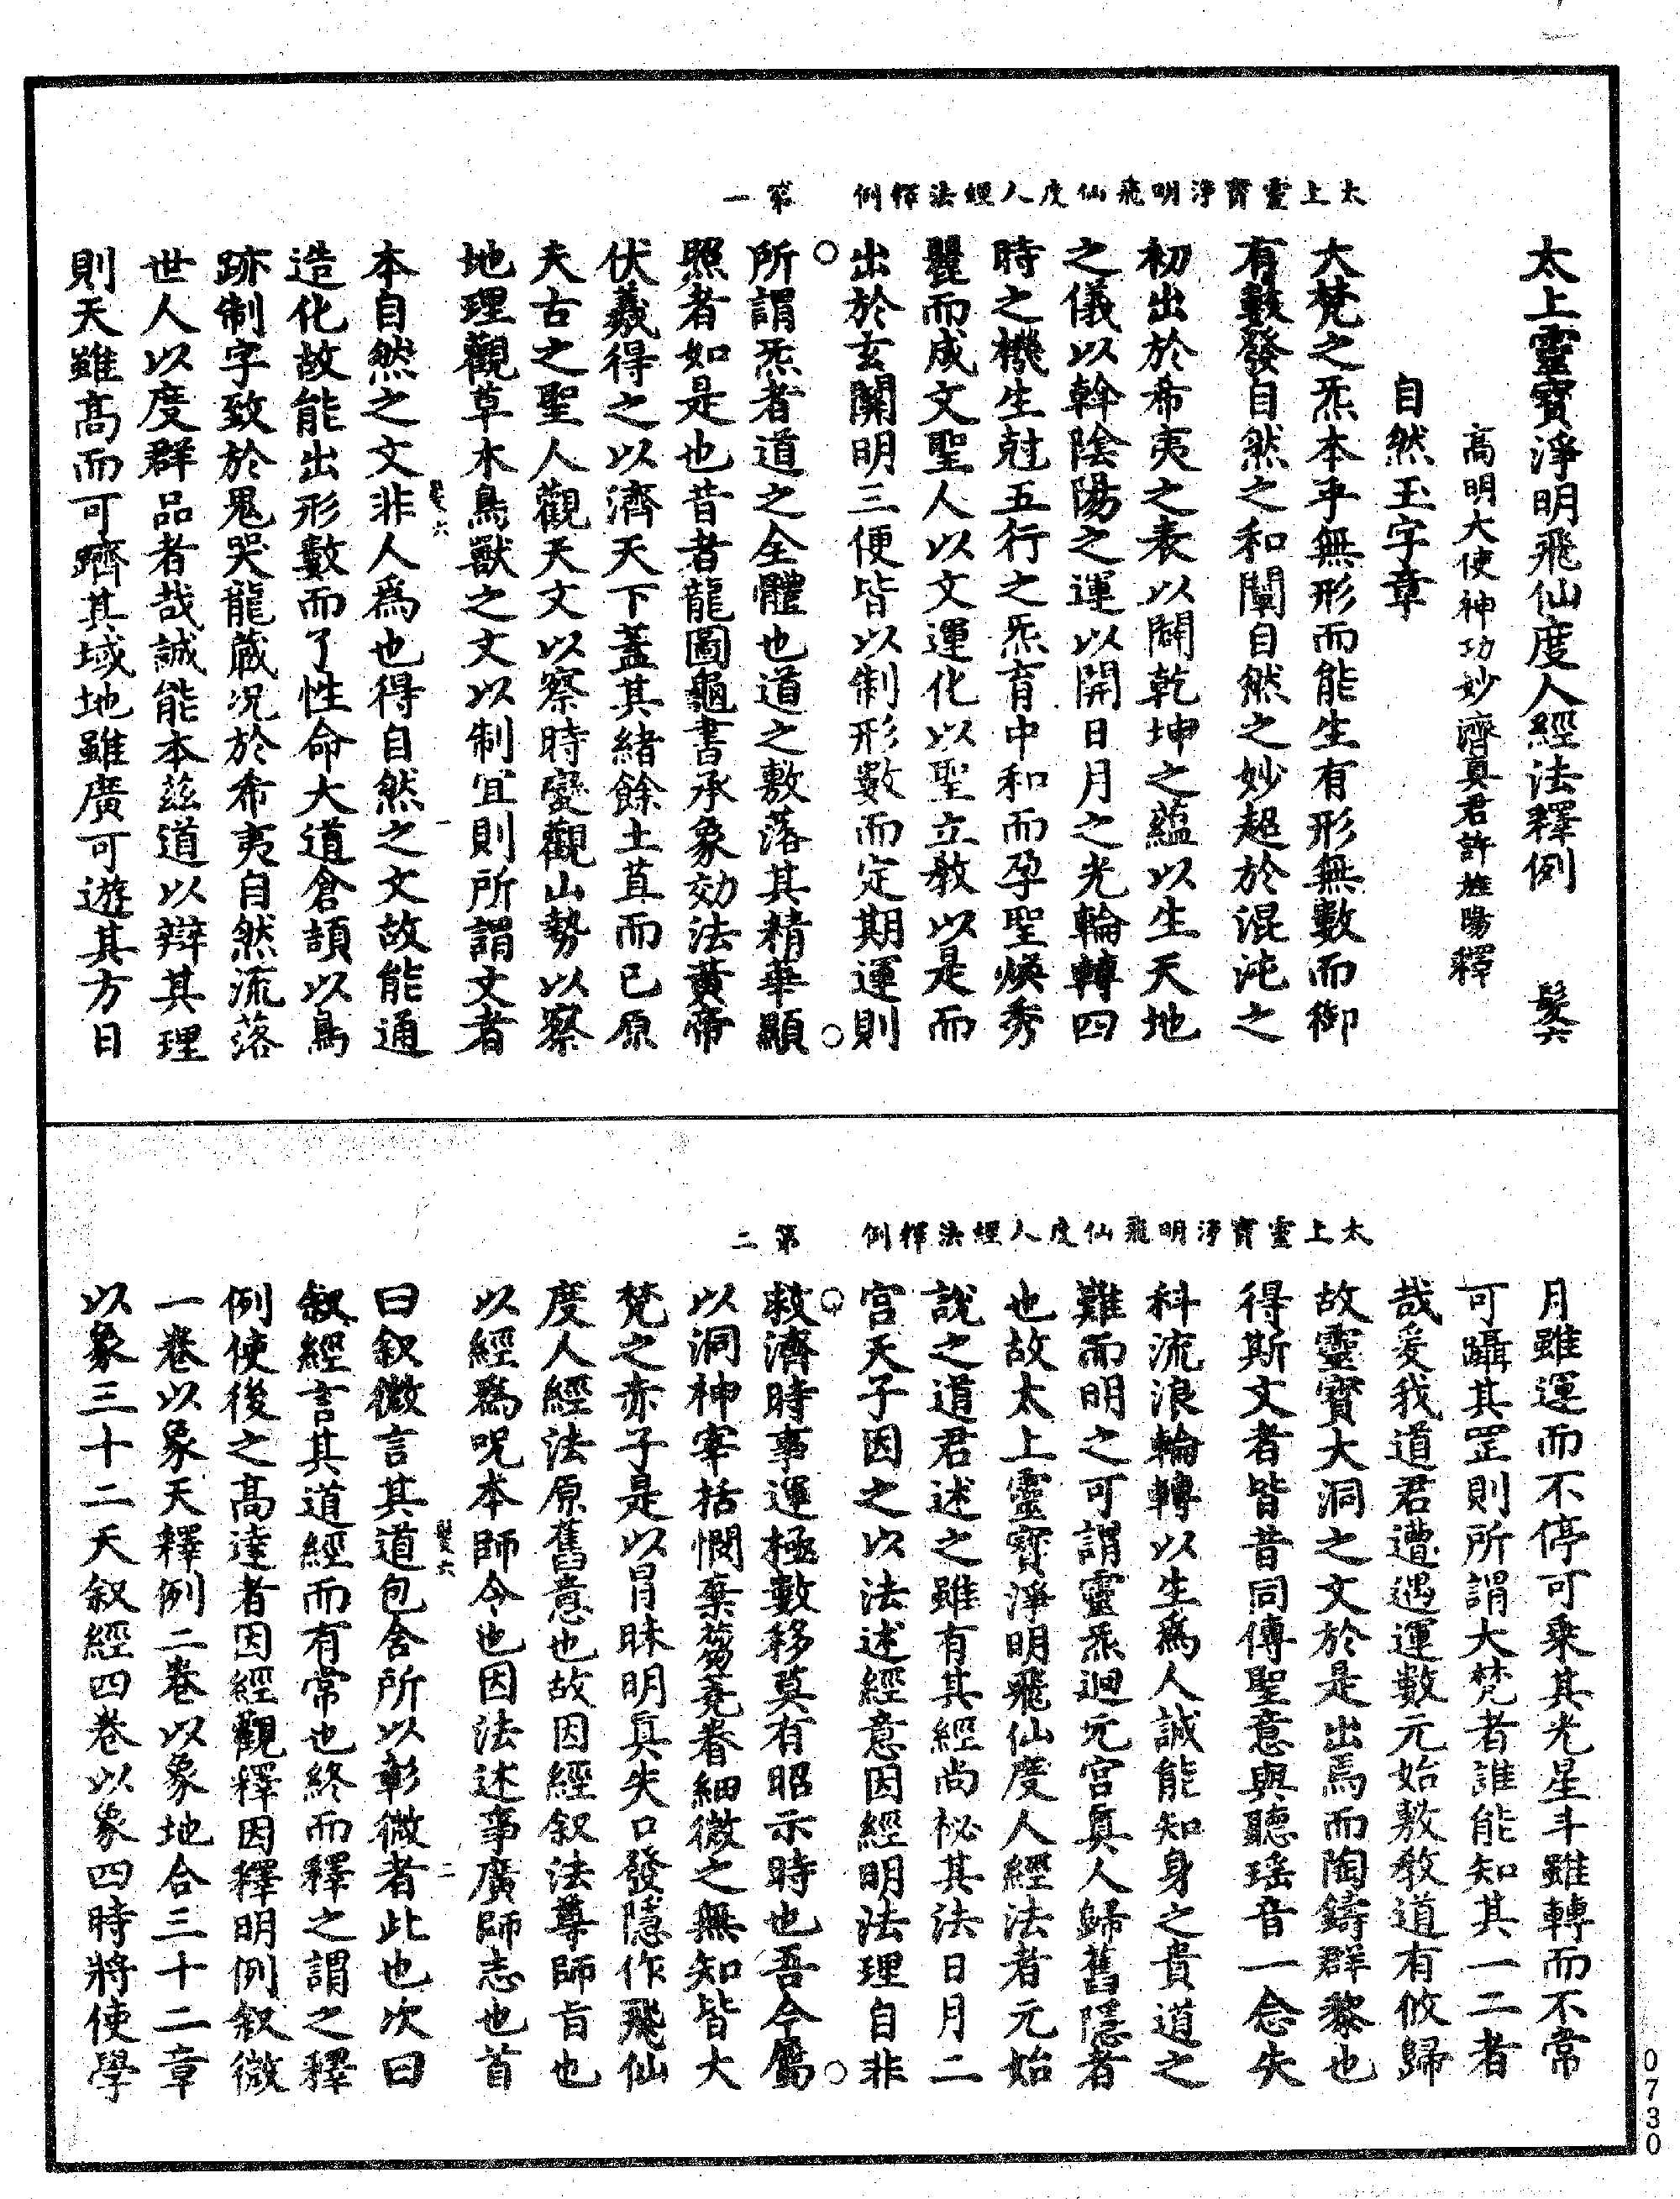 太上靈寶淨明飛仙度人經法釋例 第一
太上靈寶淨明飛仙度人經法釋例 髮六
高明大使神功妙濟真君許旌陽釋
自然玉字章
大梵之炁本乎無形而能生有形無數而御
有數發自然之和闡自然之妙超於混沌之
初出於希夷之表以闢乾坤之蘊以生天地
之儀以斡陰陽之運以開日月之光輪轉四
時之機生尅五行之炁育中和而孕聖煥秀
麗而成文聖人以文運化以聖立教以是而
出於玄關明三便皆以制形數而定期運則
所謂炁者道之全體也道之敷落其精華顯
照者如是也昔者龍圖龜書承象効法黃帝
伏羲得之以濟天下蓋其緒餘土苴而已原
夫古之聖人觀天文以察時變觀山勢以察
地理觀草木鳥獸之文以制宜則所謂文者
本自然之文非人爲也得自然之文故能通
造化故能出形數而了性命大道倉頡以鳥
跡制字致於鬼哭龍藏况於希夷自然流落
世人以度群品者哉誠能本茲道以辯其理
則天雖高而可躋其域地雖廣可遊其方日
髮六 一
太上靈寶淨明飛仙度人經法釋例 第二
月雖運而不停可乘其光星斗雖轉而不常
可躡其罡則所謂大梵者誰能知其一二者
哉爰我道君遭遇運數元始敷教道有攸歸
故靈寶大洞之文於是出焉而陶鑄群黎也
得斯文者皆昔同傳聖意與聽瑤音一念失
科流浪輪轉以生爲人誠能知身之貴道之
難而明之可謂靈炁迴元宮真人歸舊隱者
也故太上靈寶淨明飛仙度人經法者元始
說之道君述之雖有其經尚祕其法日月二
宮天子因之以法述經意因經明法理自非
救濟時事運極數移莫有昭示時也吾今屬
以洞神宰括憫棄蒭蕘眷細微之無知皆大
梵之赤子是以冐昧明真失口發隱作飛仙
度人經法原舊意也故因經叙法尊師旨也
以經爲呪本師今也因法述事廣師志也首
曰叙微言其道包含所以彰微者此也次曰
叙經言其道經而有常也終而釋之謂之釋
例使後之高達者因經觀釋因釋明例叙微
一卷以象天釋例二卷以象地合三十二章
以象三十二天叙經四卷以象四時將使學
髮六 二
0730